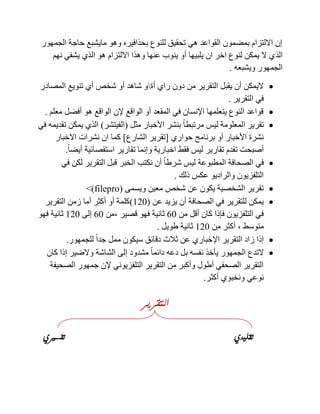 إن الالتزام بمضمون القواعد هي تحقيق للنوع بحذافيره وهو مايشبع حاجة الجمهور
الذي لا يمكن لنوع اخر ان يلبيها أو ينوب عنها وهذا الالتزام هو الذي يشفي نهم
الجمهور ويشبعه .
• لايمكن أن يقبل التقرير من دون راي أة/و شاهد أو شخص أي تنويع المصادر
في التقرير .
• قواعد النوع يتعلمها الإنسان في المقعد أو الواقع لإن الواقع هو أفضل معلم .
• تقرير المعلومة ليس مرتبطاً بنشر الأخبار مثل (الفيتشر) الذي يمكن تقديمه في
نشرة الأخبار أو برنامج حواري [تقرير الشارع] كما ان نشرات الاخبار
أصبحت تقدم تقارير ليس فقط اخبارية وإنما تقارير استقصائية أيضاً.
• في الصحافة المطبوعة ليس شرطاً أن نكتب الخبر قبل التقرير لكن في
التلفزيون والراديو عكس ذلك .
• تقرير الشخصية يكون عن شخص معين ويسمى (filepro)<
• يمكن للتقرير في الصحافة أن يزيد عن (120)كلمة أو أكثر أما زمن التقرير
في التلفزيون فإذا كان أقل من 60 ثانية فهو قصير ،من 60 إلى 120 ثانية فهو
متوسط ، أكثر من 120 ثانية طويل .
• إذا زاد التقرير الإخباري عن ثلاث دقائق سيكون ممل جداً للجمهور.
• لاتدع الجمهور يأخذ نفسه بل دعه دائماً مشدود إلى الشاشة ولاضير إذا كان
التقرير الصحفي أطول وأكبر من التقرير التلفزيوني لان جمهور الصحيفة
نوعي ونخبوي أكثر.
التقرير
تقليدي تفسيري